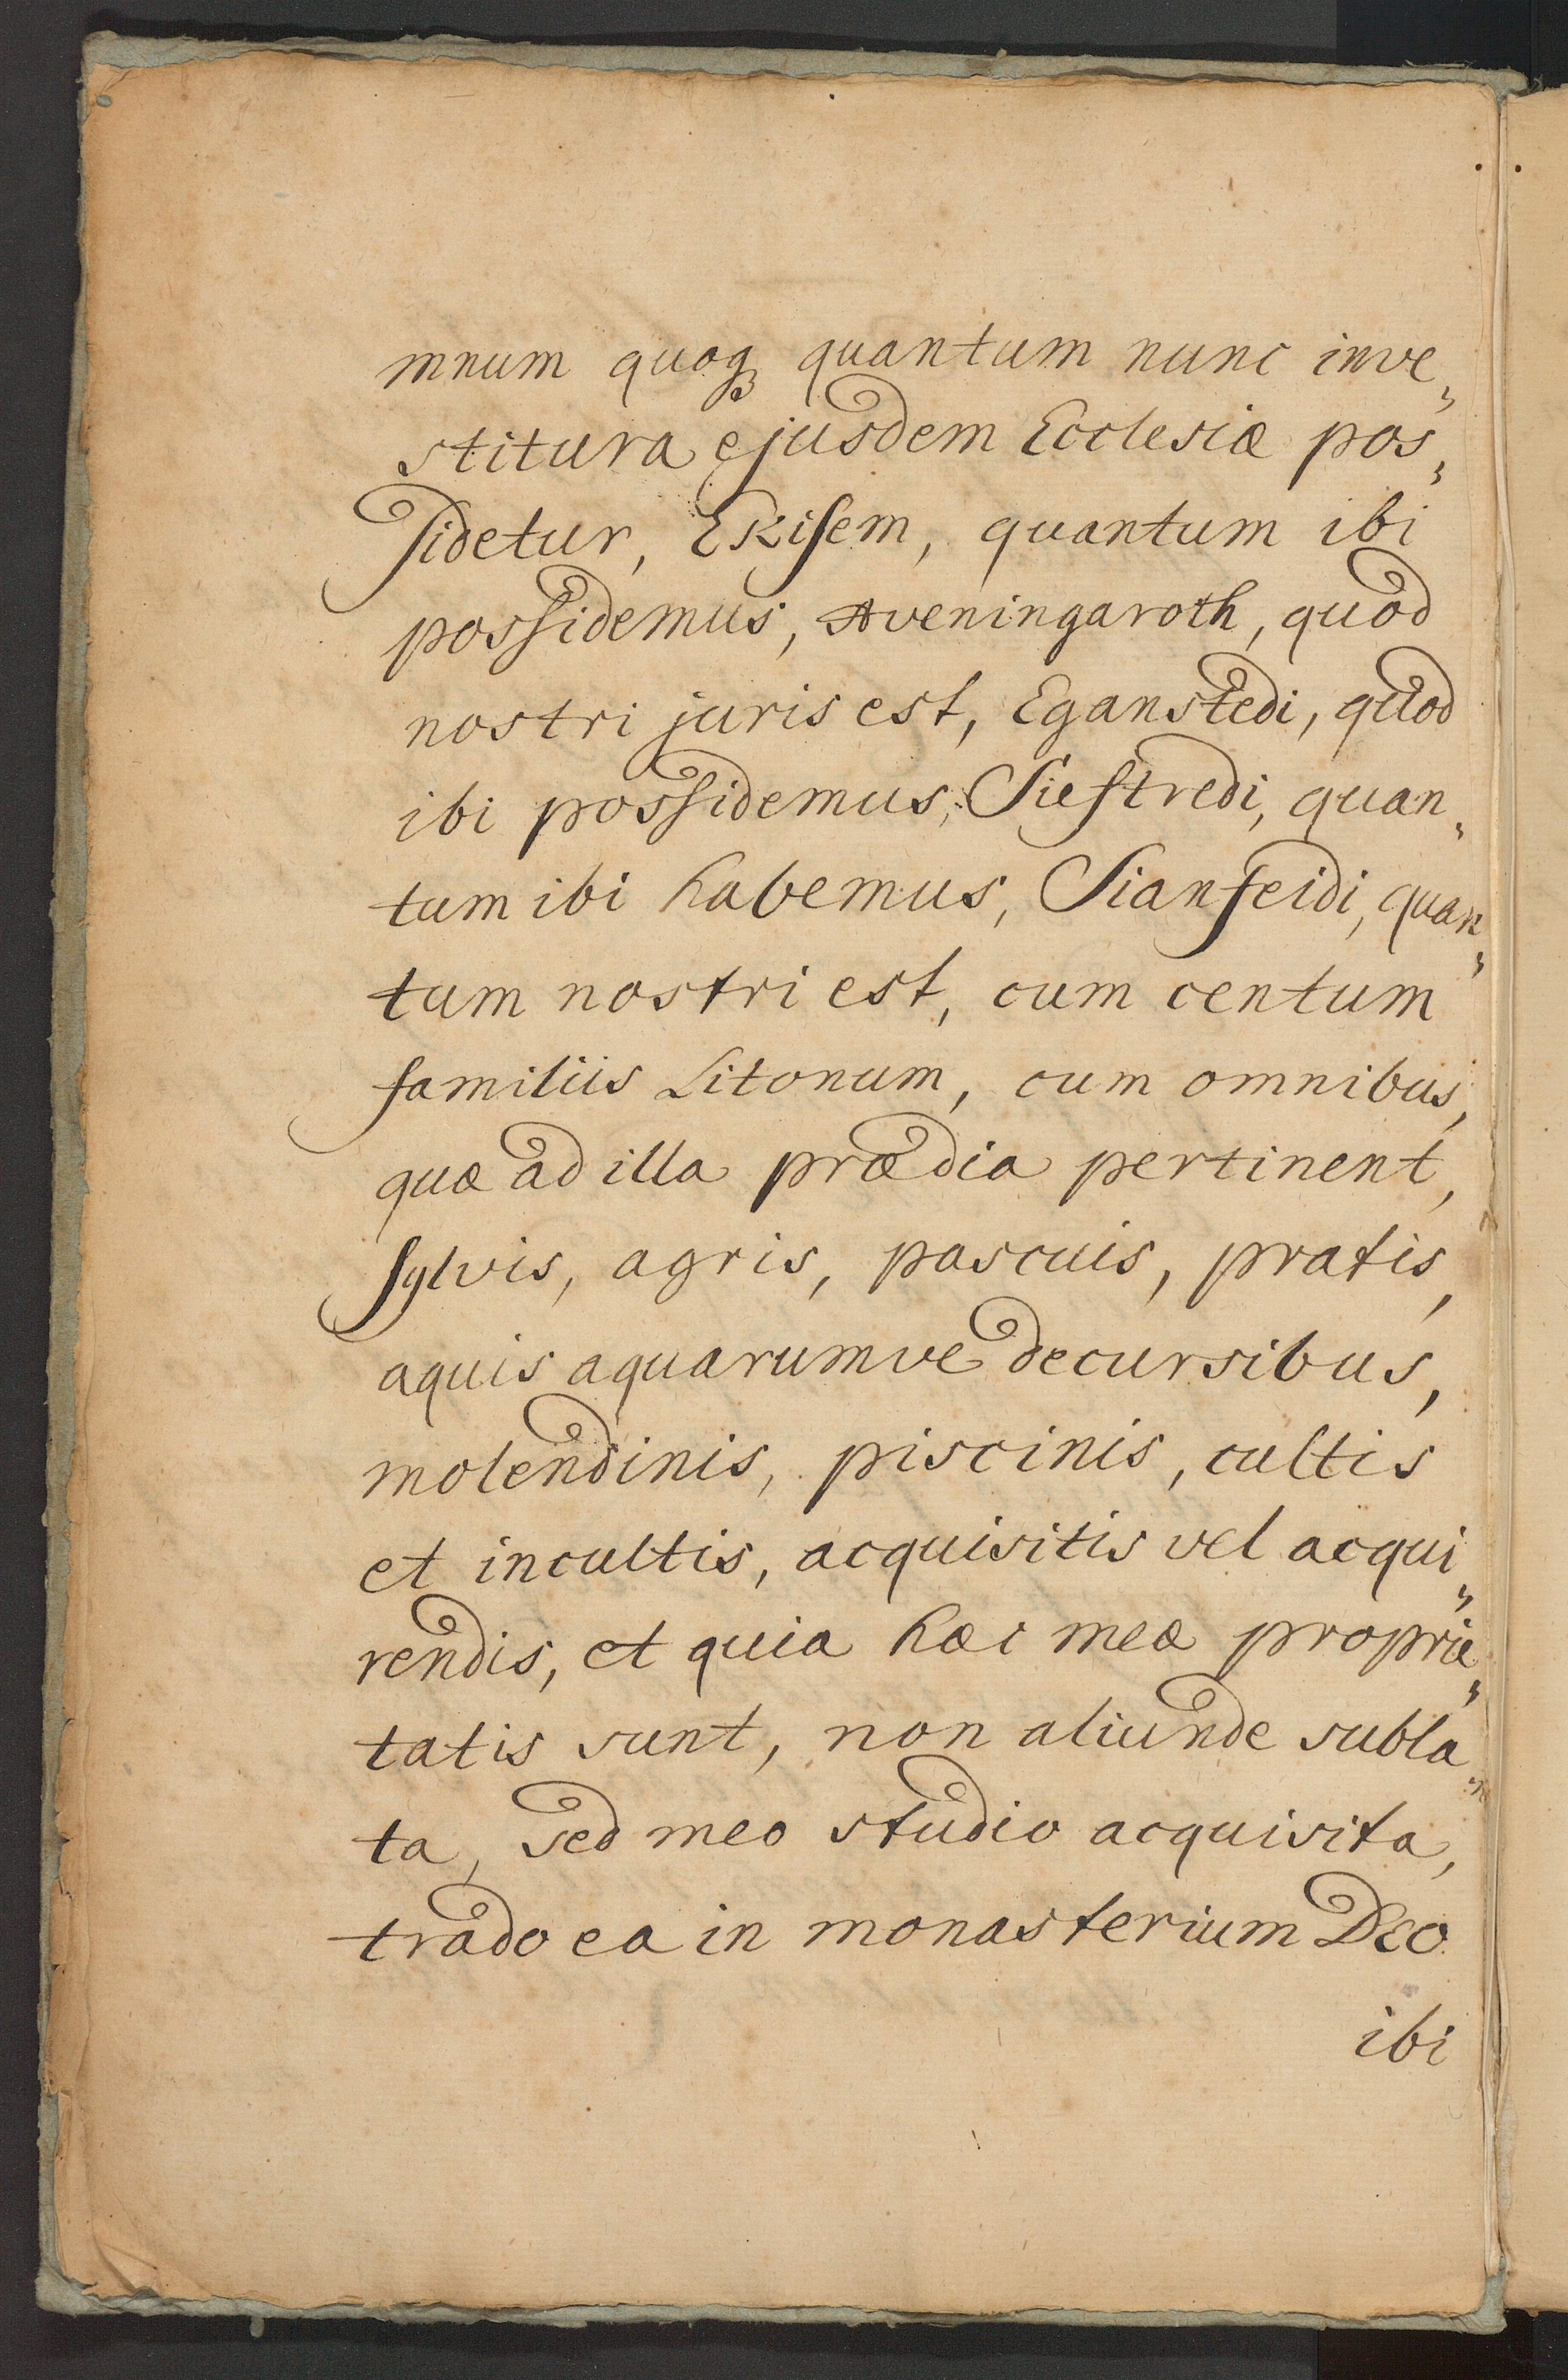 mnum quoqꝫ quantum nunc inve„
stitura ejusdem Ecclesiæ pos„
sidetur, Ekisem, quantum ibi
possidemus, Aveningaroth, quod
nostri juris est, Eganstedi, quod
ibi possidemus, Siestredi, quan„
tum ibi habemus, Sianfeidi, quan„
tum nostri est, cum centum
familiis Litonum, cum omnibus,
quæ ad illa prædia pertinent,
sylvis, agris, pascuis, pratis,
aquis aquarumve decursibus,
molendinis, piscinis, cultis
et incultis, acquisitis vel acqui„
rendis, et quia hæc meæ proprie„
tatis sunt, non aliunde subla„
ta, sed meo studio acquisita,
trado ea in monasterium Deo
ibi